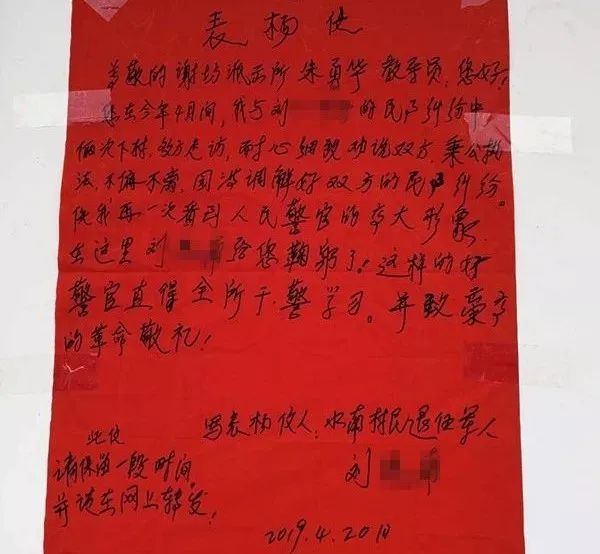 表杨伩
尊敬的谢坊派出所 朱勇华 教导员,您好!
您在今年4月间,我与刘 的民户纠纷中,
俩次下村,多方走访,耐心细致劝说双方,秉公执
法,不偏不离,园满调解好双方的民户纠纷。
使我再一次看到人民警官的高大形象
在这里刘 给您鞠躬了!这样的好
警官直得全所干警学习。并致崇高
的革命敬礼!
写表杨伩人:水南村民退伍军人
刘
此伩
请保留一段时间。
并请在网上转发!
2019.4.20日